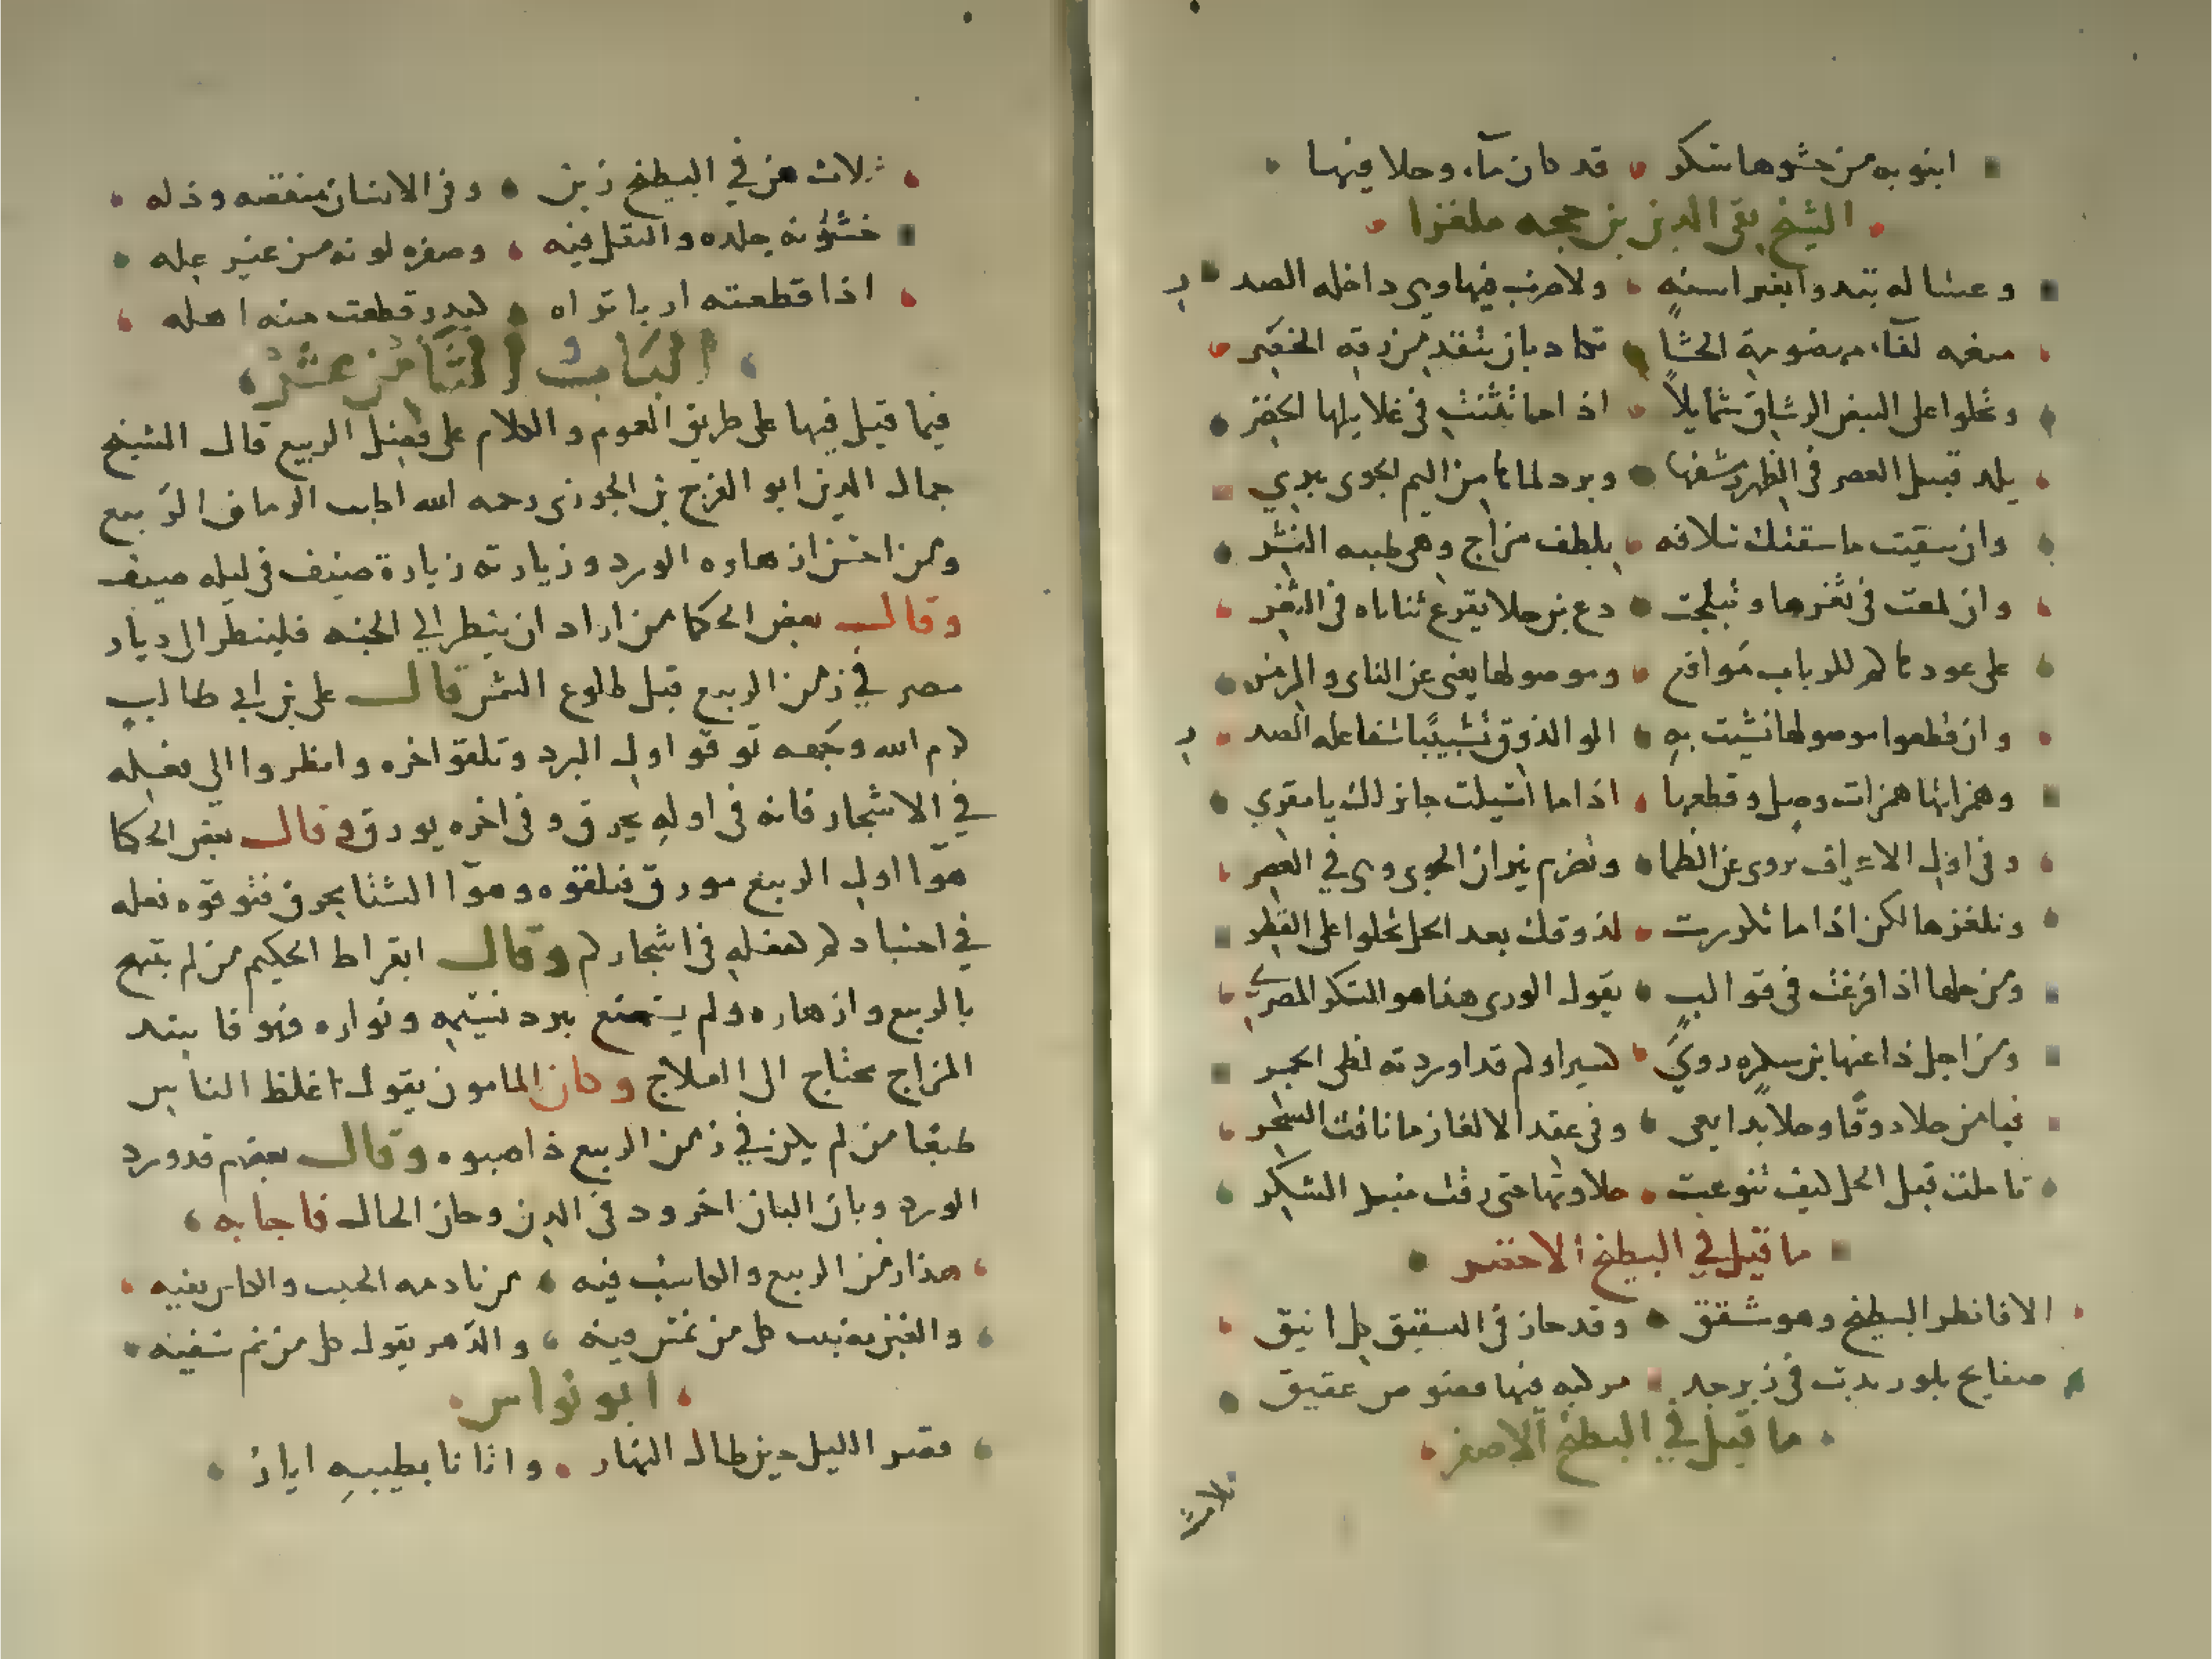 انبوبه من حشوها سكر قد كان مآء وحلا فيها
الشيخ تقي الدين بن حجه ملغزا
وعسالة تبدوا بغير اسنة ولا حرب فيها وهي داخله الصدر
لفآء مهضومة الحشا تكاد بان تنقد من رقة الخصر
وتحلوا على البيض الرشاق شمايلاً اذا ما تثنت في غلايلها الخضر
يلد قبيل العصر في الظهر رشفها وبرد لماها من اليم الجوى يبري
وان سقيت ماء سقتك سلافة بلطف مزاج وهي طيبه النشر
وان لمعت في ثغرها وتبلجت دع بن جلا يقرع ثناياه في الثغر
على عودها كم للرباب مواقع وموصولها يغني عن الناي والزمر
وان قطعوا موصولها نشيت به الموالذوق تشبيبًا شفا عله الصدر
وهمزاتها همزات وصل وقطعها اذا ما اسيلت جاز ذلك يا مقري
وفي اول الاعراف تروى عن الظما وتضرم نيران الجوى وهي في العصر
ونلغزها لكن اذا ما تكررت لذوقك بعد الحل تحلوا على القطر
ومن حلها اذا افرغت في قوالب يقول الورى هذا هو السكر المصري
ومن اجل ذا عنها بن سكره روى كسيرا وكم قد اوردته لظى الجمر
فيامن حلا ذوقًا وحلا بدايعي وفي عقد الالغاز ما نافث السحر
تاملت قبل الحل كيف تنوعت حلاوتها حتى رقت منبر الشكر
ما قيل في البطيخ الاخضر
الا فانظر البطيخ وهو مشقق وقد حاز في التشقيق كل انيق
صفايح بلور بدت في زبرجد مركبه فيها فصوص عقيق
ما قيل في البطيخ الاصفر
ثلاث
ثلاث هن في البطيخ زين وفي الانسان منقصه وذله
خشونه جلده والثقل فيه وصفره لونه من غير عله
اذا قطعته اربا تراه كبدر قطعت منه اهله
الباب الثامن عشر
فيما قيل فيها على طريق العموم والكلام على فصل الربيع قال الشيخ
جمال الدين ابو الفرج بن الجوزي رحمه الله اطيب الزمان الربيع
ومن احسن ازهاره الورد وزيارته زيارة ضيف في ليله صيف
وقال بعض الحكما من اراد ان ينظر الي الجنه فلينظر الى ديار
مصر في زمن الربيع قبل طلوع الشمس قال على بن ابي طالب
كرم الله وجهه توقوا اول البرد وتلقوا اخره وانظروا الى فعله
في الاشجار فانه في اوله يحرق وفي اخره يورق وقال بعض الحكما
هوآ اول الربيع مورق فتلقوه وهوآ الشتا يحرق فتوقوه فعله
في اجسادكم كفعله في اشجاركم وقال ابقراط الحكيم من لم يبتهج
بالربيع وازهاره ولم يتمتع ببرد نسيمه ونواره فهو فاسد
المزاج محتاج الى العلاج وكان المامون يقول اغلظ الناس
طبعا من لم يكن في زمن الربيع ذا صبوه وقال بعضهم قد ورد
الورد وبان البان اخر ود في الدن وحان الحال فاجابه
هذا زمن الربيع والكاس فيه من نادمه الحبيب والكاس يفيه
والغبن يصيب كل من غمض فيه والدهر يقول كل من نم سفيه
ابو نواس
قصر الليل حين طال النهار واتانا بطيبه ايار